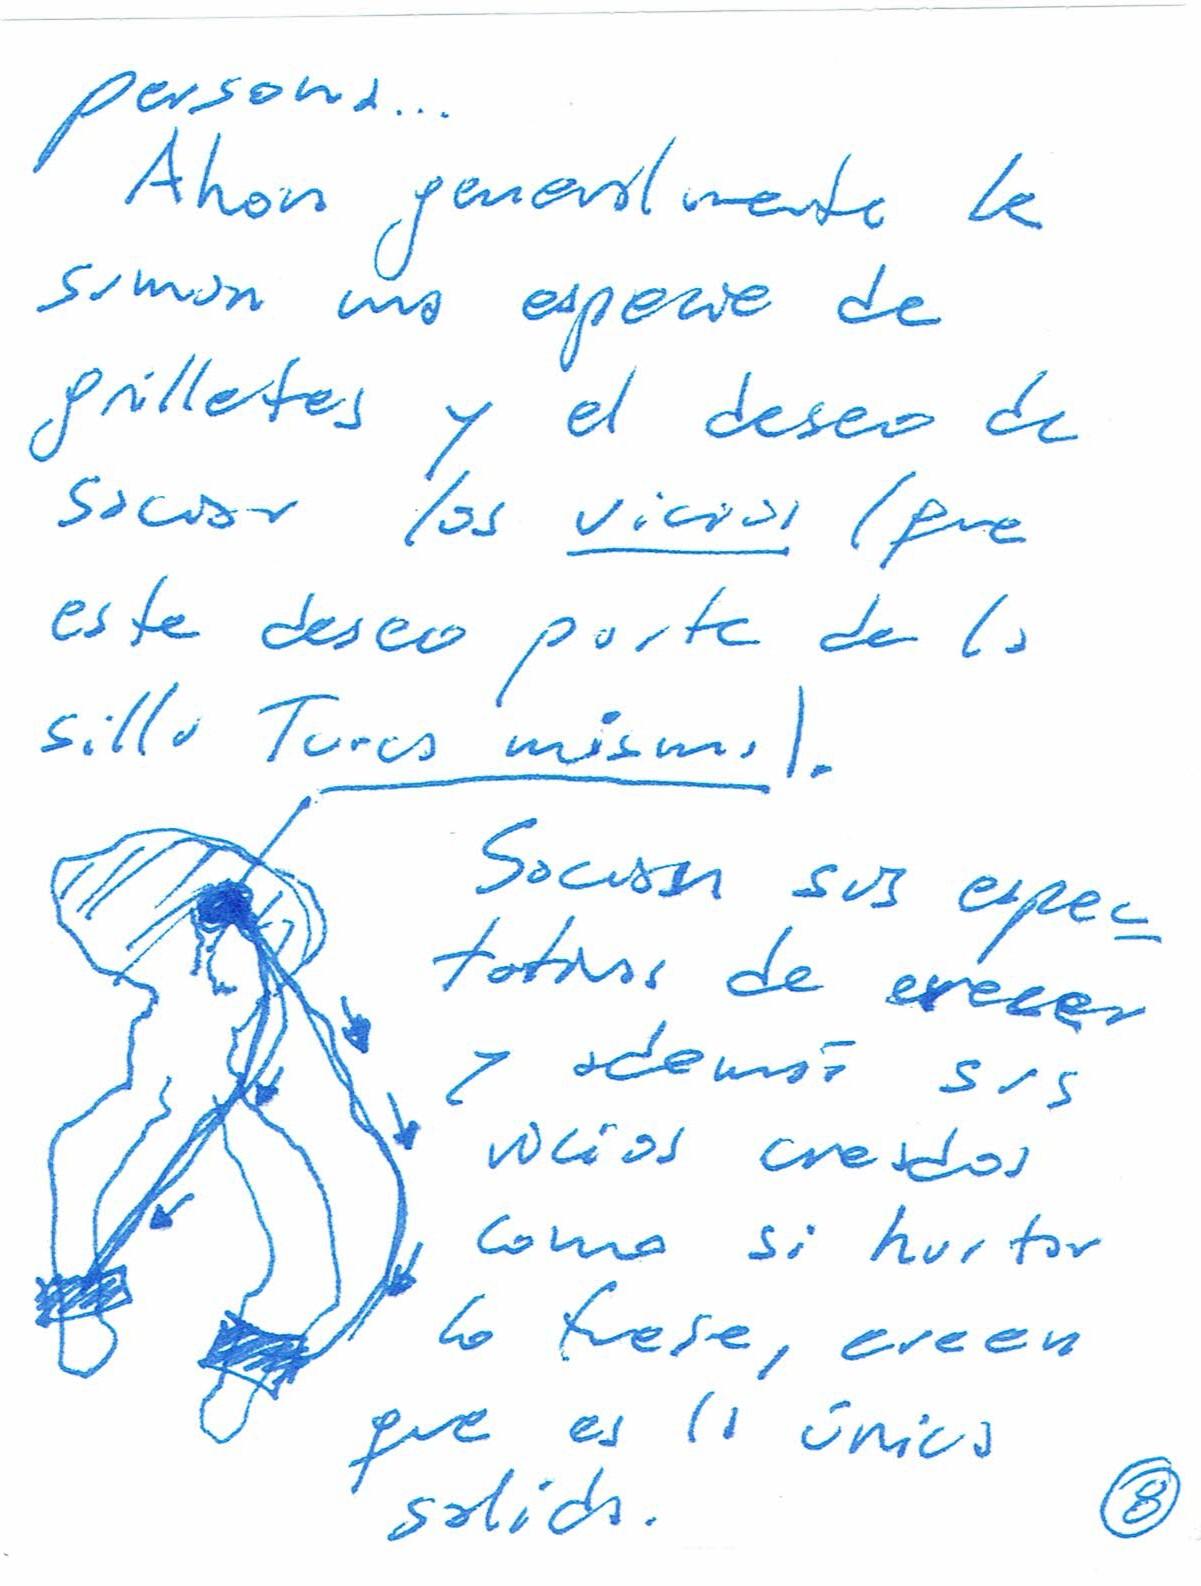 persona...
Ahora generalmente le
suman una especie de
grilletes y el deseo de
saciar los vicios (que
este deseo parte de la
silla Turca misma).
Sacian sus espec
tativas de crecer
y además sus
vicios creados
como si hurtar
lo fuese, creen
que es la única
salida.
8